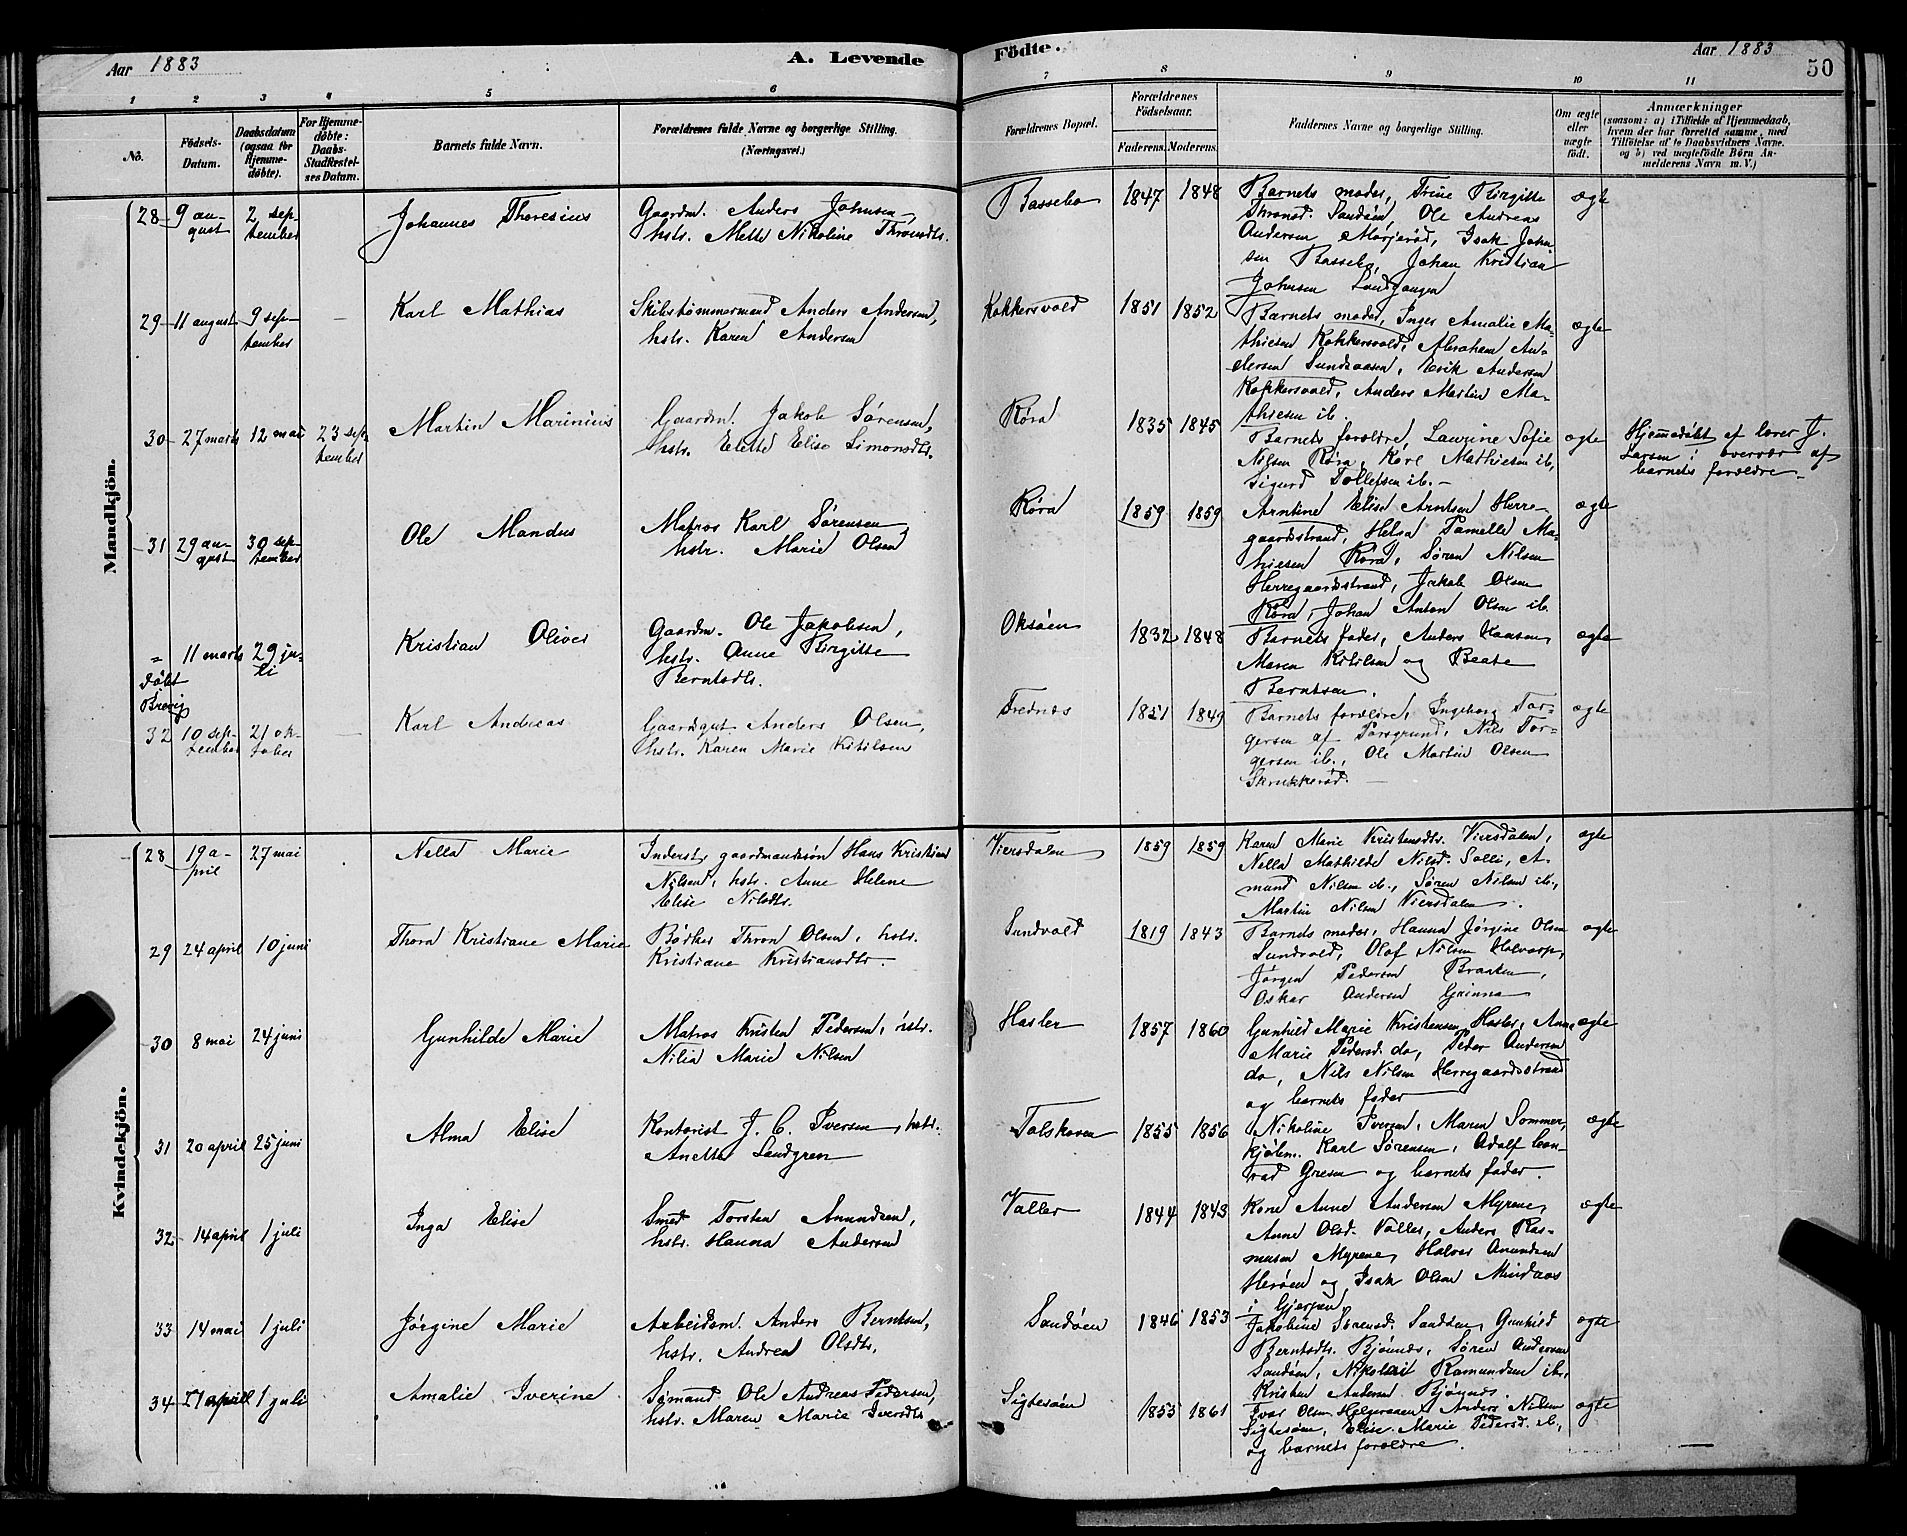 Aar 1883
A. Levende
Födte.
Aar 1883
50
1 2 3 4 5 6 7 8 9 10 11
No.
Födsels-
Datum.
Daabsdatum
(ogsaa for
Hjemme-
döbte).
For Hjemme-
döbte:
Daabs-
Stadfæstel-
ses Datum.
Barnets fulde Navn.
Forældrenes fulde Navne og borgerlige Stilling.
(Næringsvei.)
Forældrenes Bopæl.
Forældrenes
Födselsaar.
Faderens. Moderens.
Faddernes Navne og borgerlige Stilling.
Om ægte
eller
uægte
födt.
Anmærkninger
(saasom: a) i Tilfælde af Hjemmedaab,
hvem der har forrettet samme, med
Tilföielse af to Daabsvidners Navne.
og b) ved uægtefödte Börn An-
melderens Navn m. V.)
Mandkjön.
28 9 au-
gust
2 sep-
tember
Johannes Theresius
Gaardm. Anders Johnsen,
hstr. Mette Nikoline Throndtr.
Bassebo
1847 1848
Barnets moder, Trine Birgitte
Thronsd. Sandøen, Ole Andreas
Andersen Mørjerød, Isak John-
sen Bassebo, Johan Kristian
Johnsen
ægte
29 11 august
9 sep-
tember
Karl Mathias
Skibstømmermand Anders Andersen,
hstr. Karen Andersen
Kokkersvold
1851 1852
Barnets moder, Inger Amalie Ma-
thiesen Kokkersvold, Abraham An-
dersen Sundsaasen, Erik Andersen
Kokkersvold, Anders Martin Ma-
thiesen ib.
ægte
30 27 marts 12 mai
23 sep-
tember
Martin Marinius
Gaardm. Jakob Sørensen,
hstr. Elette Elise Simonsdtr.
Røra
1835 1845
Barnets forældre, Laurine Sofie
Nilsen Røra, Karl Mathiesen ib,
Sigurd Tollefsen ib.
ægte
Hjemmedøbt af lærer J.
Larsen i overvær af
barnets forældre
31 29 au-
gust
30 sep-
tember
Ole Mandus
Matros Karl Sørensen,
hstr. Marie Olsen
Røra
1859 1859
Arntine Elise Arntsen Herre-
gaardstrand, Helna Pamelle Ma-
thiesen Røra, Søren Nilsen
Herregaardsstrand, Jakob Olsen
Røra, Johan Anton Olsen ib.
ægte
"
døbt
Brevig
11 marts
29 ju-
li
Kristian Oliver
Gaardm. Ole Jakobsen,
hstr. Anne Birgitte
Berntsdtr.
Oksøen
1832 1848
Barnets fader, Anders Hansen,
Maren Kitilsen og Beate
Berntsen.
ægte
32 10 sep-
tember
21 ok-
tober
Karl Andreas
Gaardgut Anders Olsen,
hstr. Karen Marie Kitilsen
Frednes
1851 1849
Barnets forældre, Ingeborg Tor-
gersen af Porsgrund, Nils Tor-
gersen ib., Ole Martin Olsen
Skrukkerød.
ægte
Kvindekjön.
28 19 a-
pril
27 mai
Nella Marie
Inderst, gaardmandssøn Hans Kristian
Nilsen, hstr. Anne Helene
Elise Nilsdtr.
Viersdalen
1859 1859
Karen Marie Kristensdtr. Viersdalen,
Nella Mathilde Nilsd. Solli, A-
mund Nilsen ib., Søren Nilsen ib.,
Martin Nilsen Viersdalen.
ægte
29 24 april 10 juni
Thora Kristiane Marie
Bødker Thron Olsen, hstr.
Kristiane Kristiansdtr.
Sundvold
1819 1843
Barnets moder, Hanna Jørgine Olsen
Sundvold, Olaf Nilsen Halvarp,
Jørgen Pedersen Braaten,
Oskar Andersen Grinna
ægte
30 8 mai 24 juni
Gunhilde Marie
Matros Kristen Pedersen, hstr.
Nilia Marie Nilsen
Hasler
1857 1860
Gunhild Marie Kristensen Hasler, Anne
Marie Pedersd. do, Peder Andersen
do, Nils Nilsen Herregaardsstrand
og barnets fader
ægte
31 20 april 25 juni
Alma Elise
Kontorist J. C. Iversen, hstr.
Anette Sandgren
Tolskoven
1855 1856
Nikoline Iversen, Maren Sommer-
kjølen. Karl Sørensen, Adolf Con-
rad Gresen og barnets fader.
ægte
32 14 april 1 juli
Inga Elise
Smed Torsten Amundsen,
hstr. Hanna Andersen
Valler
1844 1843
Kone Anne Andersen Myrene,
Anne Olsd. Valler, Anders Ras-
musen Myrene, Halvor Amundsen
Herøen og Isak Olsen
i Gjerpen
ægte
33 14 mai 1 juli
Jørgine Marie
Arbeidsm. Anders Berntsen,
hstr. Andrea Olsdtr.
Sandøen
1846 1853
Jakobine Sørensd. Sandøen, Gunhild
Berntsdtr. Bjønnes, Søren Andersen
Sandøen, Nikolai Ramundsen ib.,
Kristen Andersen Bjønnes.
ægte
34 27 april 1 juli
Amalie Iverine
Sømand Ole Andreas Pedersen,
hstr. Maren Marie Iversdtr.
Sigtesøen
1855 1861
Ivar Olsen Helgeraaen, Anders Nilsen
Sigtesøen, Elise Marie Pedersd. ib.,
og barnets forældre.
ægte